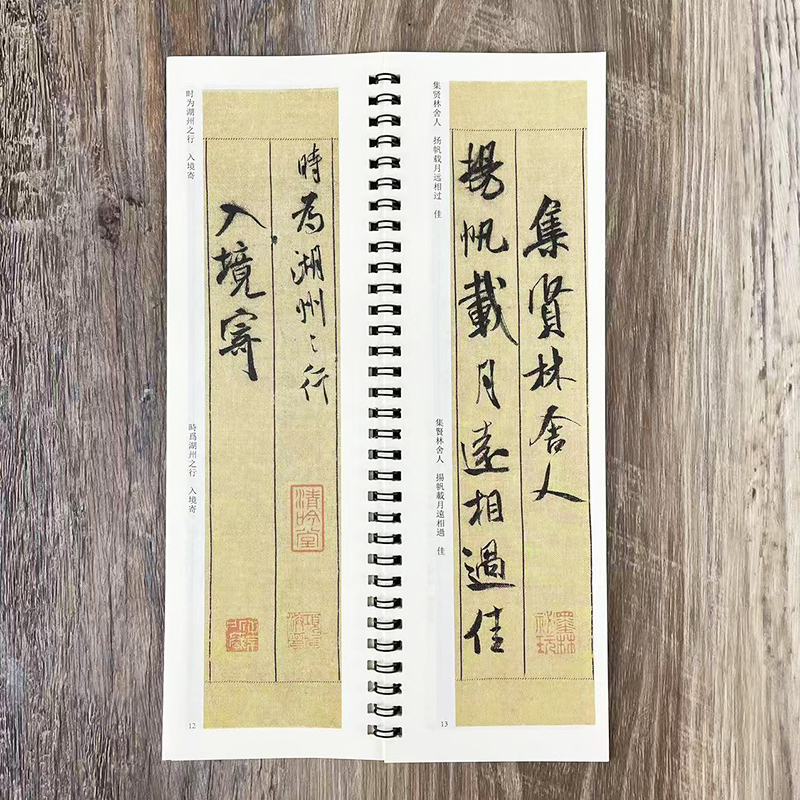 時為湖州〻行
入境寄
清吟堂
时为湖州之行 入境寄
時爲湖州之行 入境寄
12
集賢林舍人
揚帆載月遠相過佳
墨林祕玩
集贤林舍人 扬帆载月远相过 佳
集賢林舍人 揚帆載月遠相過 佳
13